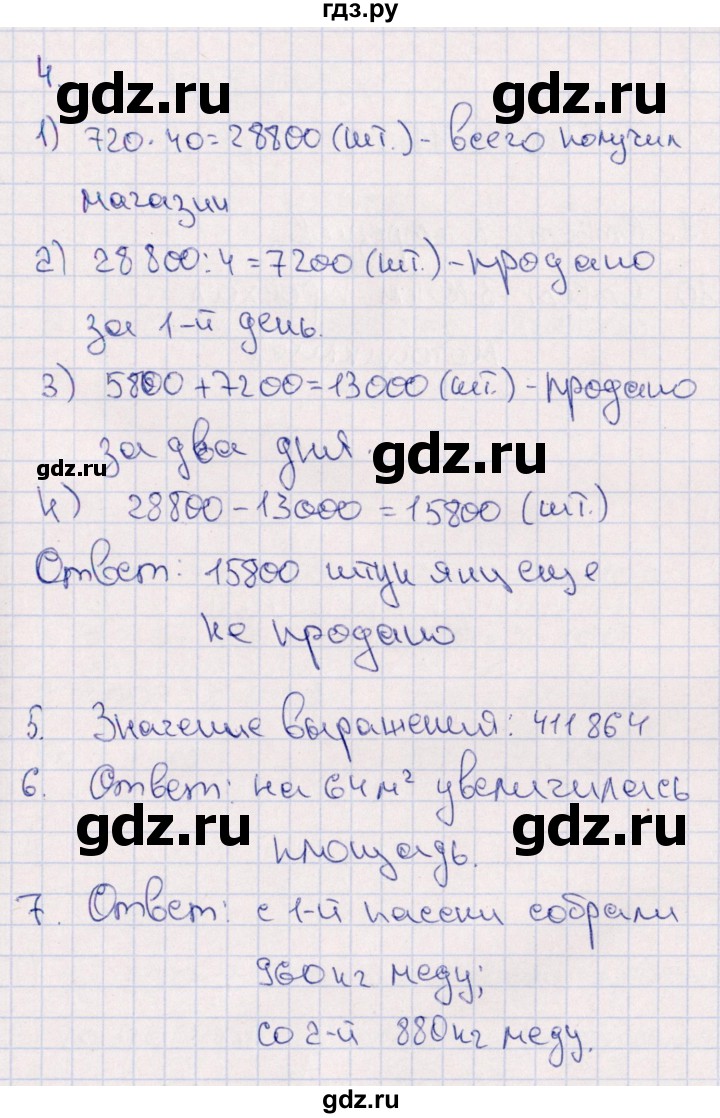 гдз.ру
4.
gdz.ru gdz.ru
1) 720·40=28800 (шт.) - всего получил
магазин
2) 28800:4=7200 (шт.) - продано
за 1-й день.
3) 5800+7200=13000 (шт.) - продано
за два дня.
gdz.ru gdz.ru
4) 28800-13000=15800 (шт.)
Ответ: 15800 штук яиц еще
не продано
5. Значение выражения: 411864
6. Ответ: на 64 м² увеличилась
gdz.ru gdz.ru
площадь.
7. Ответ: с 1-й пасеки собрали
960 кг меду;
со 2-й 880 кг меду.
gdz.ru